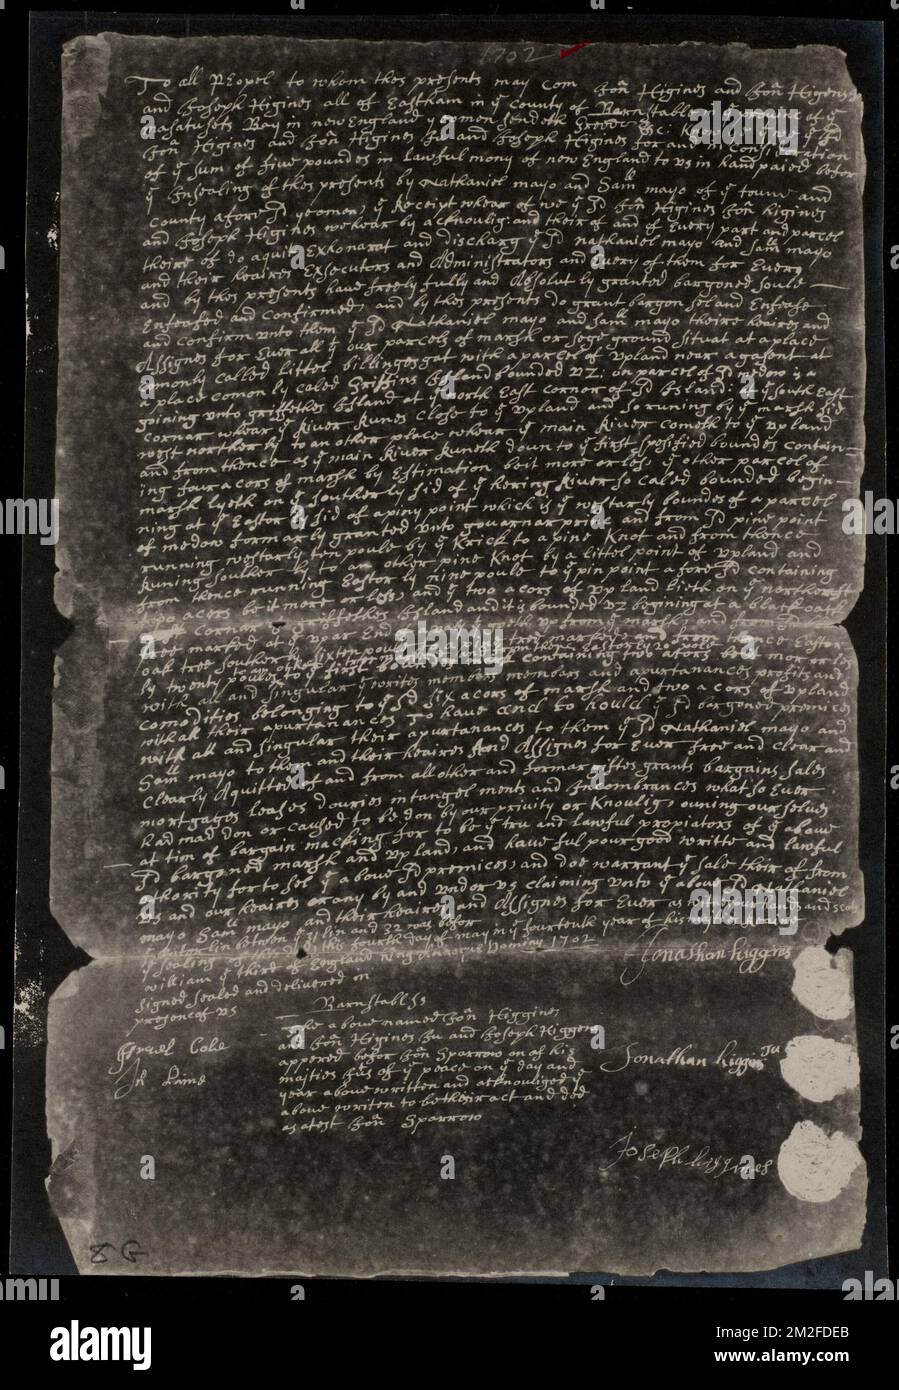 1702
To all PEopel to whom thes presents may com Jonn Higines and Jonn Higens
and Joseph Higines all of Eastham in ye County of Barnstabl in ye provence of ye
masatusets Bay in new England yeomen send Greeting &c: Know ye yt we ye sd
Jonn Higines and Jonn Higines Ju and Joseph Higines for and in Consideration
of ye sum of five poundes in Lawful mony of new England to us in hand paied befor
ye Insealing of thes presents by Nathaniel mayo and Samll mayo of ye towne and
County afore sd yeomen, ye Receipt whear of we ye sd Jonn Higines Jonn higines
and Joseph Higines we hear by acknoulig: and their of and of Every part and parcel
theire of do aquit Exkonarat and discharg ye sd nathaniel mayo and Samll mayo
and their heaires Exsecutors and Administrators and Every of them for Ever
and by thes presents have freely fully and Absolutly granted bargoned soule
Enfeafed and Confirmed, and by thes presents Do grant bargon sel and Enfeafe
and Confirm unto them ye sd Nathaniel mayo and Samll mayo theire heaires and
Assignes for Ever all yt our parcels of marsh or sege ground situat at a place
Comonly Called littel billingesgat with a parcel of Upland near agasent at
a place comonly caled Griffins Island bounded vz. on parcel of sd medow is a
goining unto griffethes Island at ye North East Cornor of sd Island: at ye South East
Cornar whear ye River Runes Close to ye Upland and so running by ye marsh sid
west northerly to an other place whear ye main River Cometh to ye Upland
and from thence as ye main River Runeth down to ye first spesified boundes contain-
ing four acors of marsh by Estimation be it more or les ye other parcel of
marsh lyeth on ye southerly sid of ye hering River so caled bounded begin-
ning at ye Easterly sid of a piny point which is ye westarly boundes of a parcel
of medow formarly granted unto govarnar prince and from sd pine point
running westarly ten poule by ye Krick to a pine Knot and from thence
Runing southerly to an other pine Knot by a littel point of Upland and
from thence running Easterly nine poule to ye pin point afore sd containing
two acors be it more or les, and ye two acors of Upland lieth on ye northeast
Cornar of griffethes Island and it is bounded vz begining at a black oak
tree marked at ye upar End up from ye marsh; and from sd
oak tree southerly sixten poule tree marked, and from thence Easter
ly twenty poule to ye first containing two acors be it mor or les
with all and singular ye writes members and apurtanances profits and
comodities belonging to ye sd six acors of marsh and two acors of Upland
with all their apurtanances To have and to hould ye sd bargoned premices
with all and singular their apurtanances to them ye sd Nathaniel mayo and
Samll mayo to them and their heaires And Assignes for Ever free and clear and
Clearly Aquitted of and from all other and formar giftes grants bargains sales
mortgages leases douries intangelments and Incombrances what so Ever
had mad don or caused to be don by our privity or Knoulig, owning our selves
at tim of bargain macking for to be ye tru and lawful propiators of ye above
sd bargoned marsh and Upland, and have ful pour good writte and lawful
athority for to sel ye above sd premices, and doe warrant ye sale their of from
us and our heaires or any by and under us claiming unto ye above sd Nathaniel
mayo Samll mayo and their heaires and Assignes for Ever as witnes our hands and seals
interlin between 31 lin and 32 was befor
ye sealing this fourth day of may in ye fourtenth year of his
William ye third of England King Annoque Dominy 1702
Signed sealed and delivered in
presence of us
Jonathan higgins
Israel Cole
Barnstabl ss
The above named Jonn Higgins
and Jonn Higines Ju and Joseph Higgens
appered befor Jonn Sparrow on of his
majties Jus of ye peace on ye day and
year above written and acknouliged ye
above writen to be their act and ded
as atest Jonn Sparrow
Jonathan higgins Ju
Joseph higgines
8 G
alamy
Image ID: 2M2FDEB
www.alamy.com